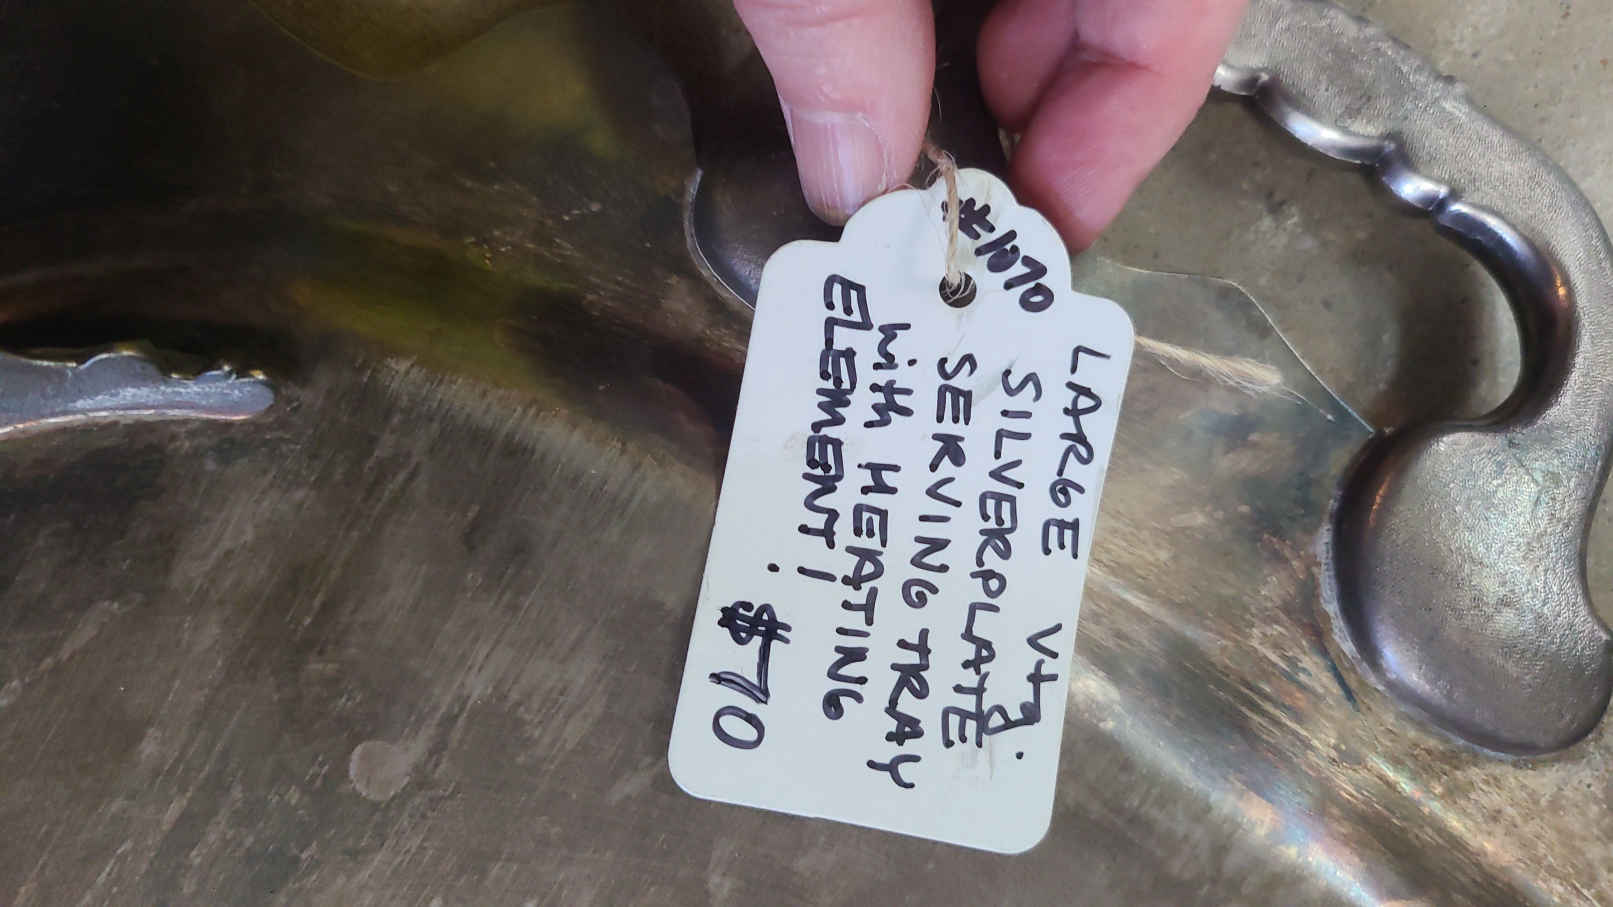 #1070
LARGE Vtg.
SILVERPLATE
SERVING TRAY
with HEATING
ELEMENT!
$70